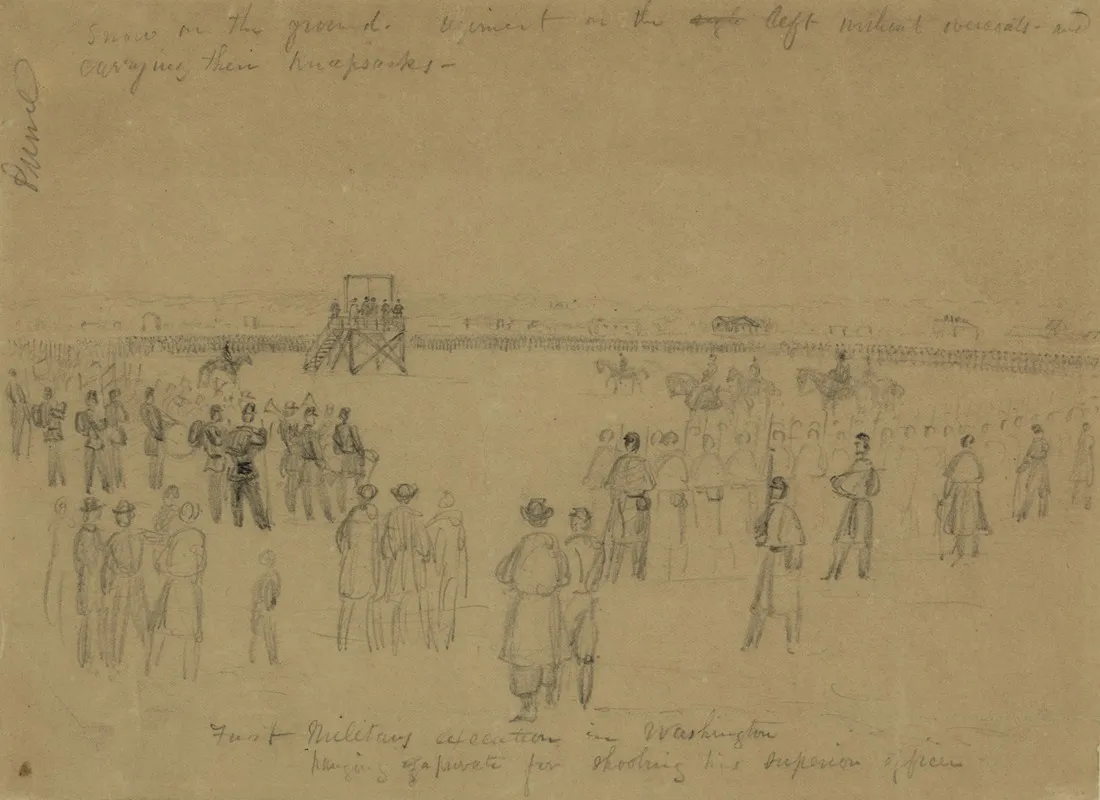 Snow on the ground. regiment on the right left without overcoats - and
carrying their knapsacks -
First Military execution in Washington
hanging of a private for shooting his superior officer